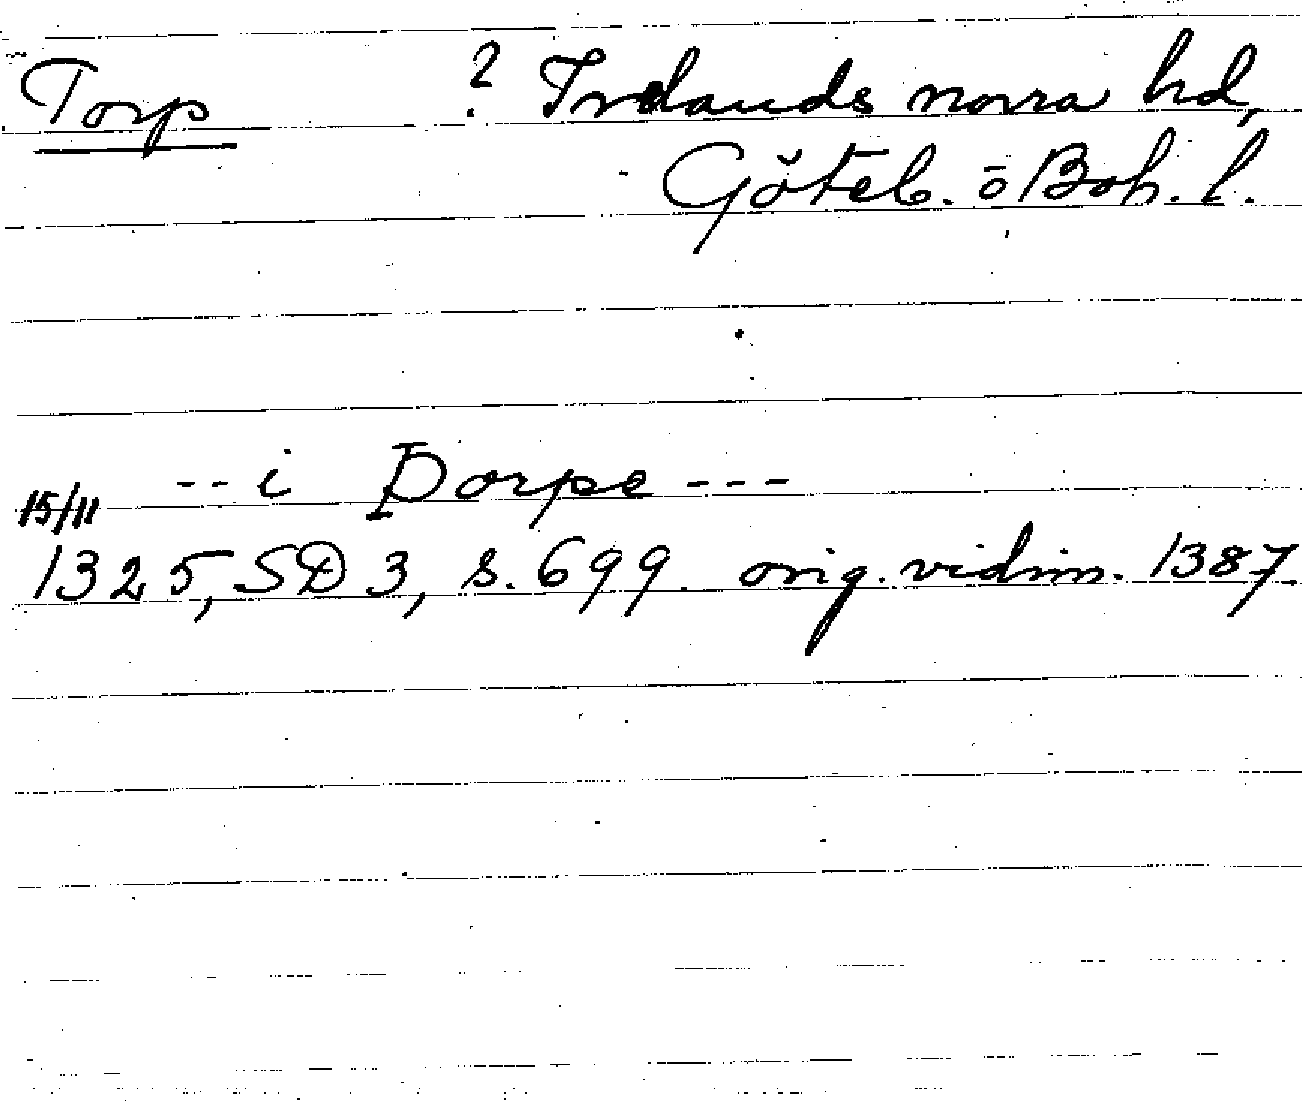 Torp ? Inlands norra hd,
Göteb. o Boh. l.
-- i Þorpe ---
15/11
1325, SD 3, s. 699 orig. vidim. 1387